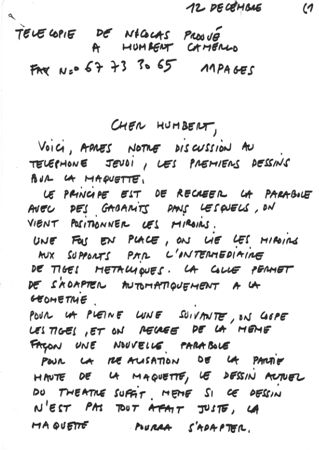 12 DECEMBRE (1
TELECOPIE DE NICOLAS PROUVÉ
A HUMBERT CAMERLO
FAX N=o 67 73 30 65 11 PAGES
CHER HUMBERT,
VOICI, APRES NOTRE DISCUSSION AU
TELEPHONE JEUDI, LES PREMIERS DESSINS
POUR LA MAQUETTE.
LE PRINCIPE EST DE RECREER LA PARABOLE
AVEC DES GABARITS DANS LESQUELS, ON
VIENT POSITIONNER LES MIROIRS.
UNE FOIS EN PLACE, ON LIE LES MIROIRS
AUX SUPPORTS PAR L'INTERMEDIAIRE
DE TIGES METALLIQUES. LA COLLE PERMET
DE S'ADAPTER AUTOMATIQUEMENT A LA
GEOMETRIE.
POUR LA PLEINE LUNE SUIVANTE, ON COUPE
LES TIGES, ET ON RECREE DE LA MEME
FAÇON UNE NOUVELLE PARABOLE
POUR LA REALISATION DE LA PARTIE
HAUTE DE LA MAQUETTE, LE DESSIN ACTUEL
DU THEATRE SUFFIT. MEME SI CE DESSIN
N'EST PAS TOUT AFAIT JUSTE, LA
MAQUETTE POURRA S'ADAPTER.